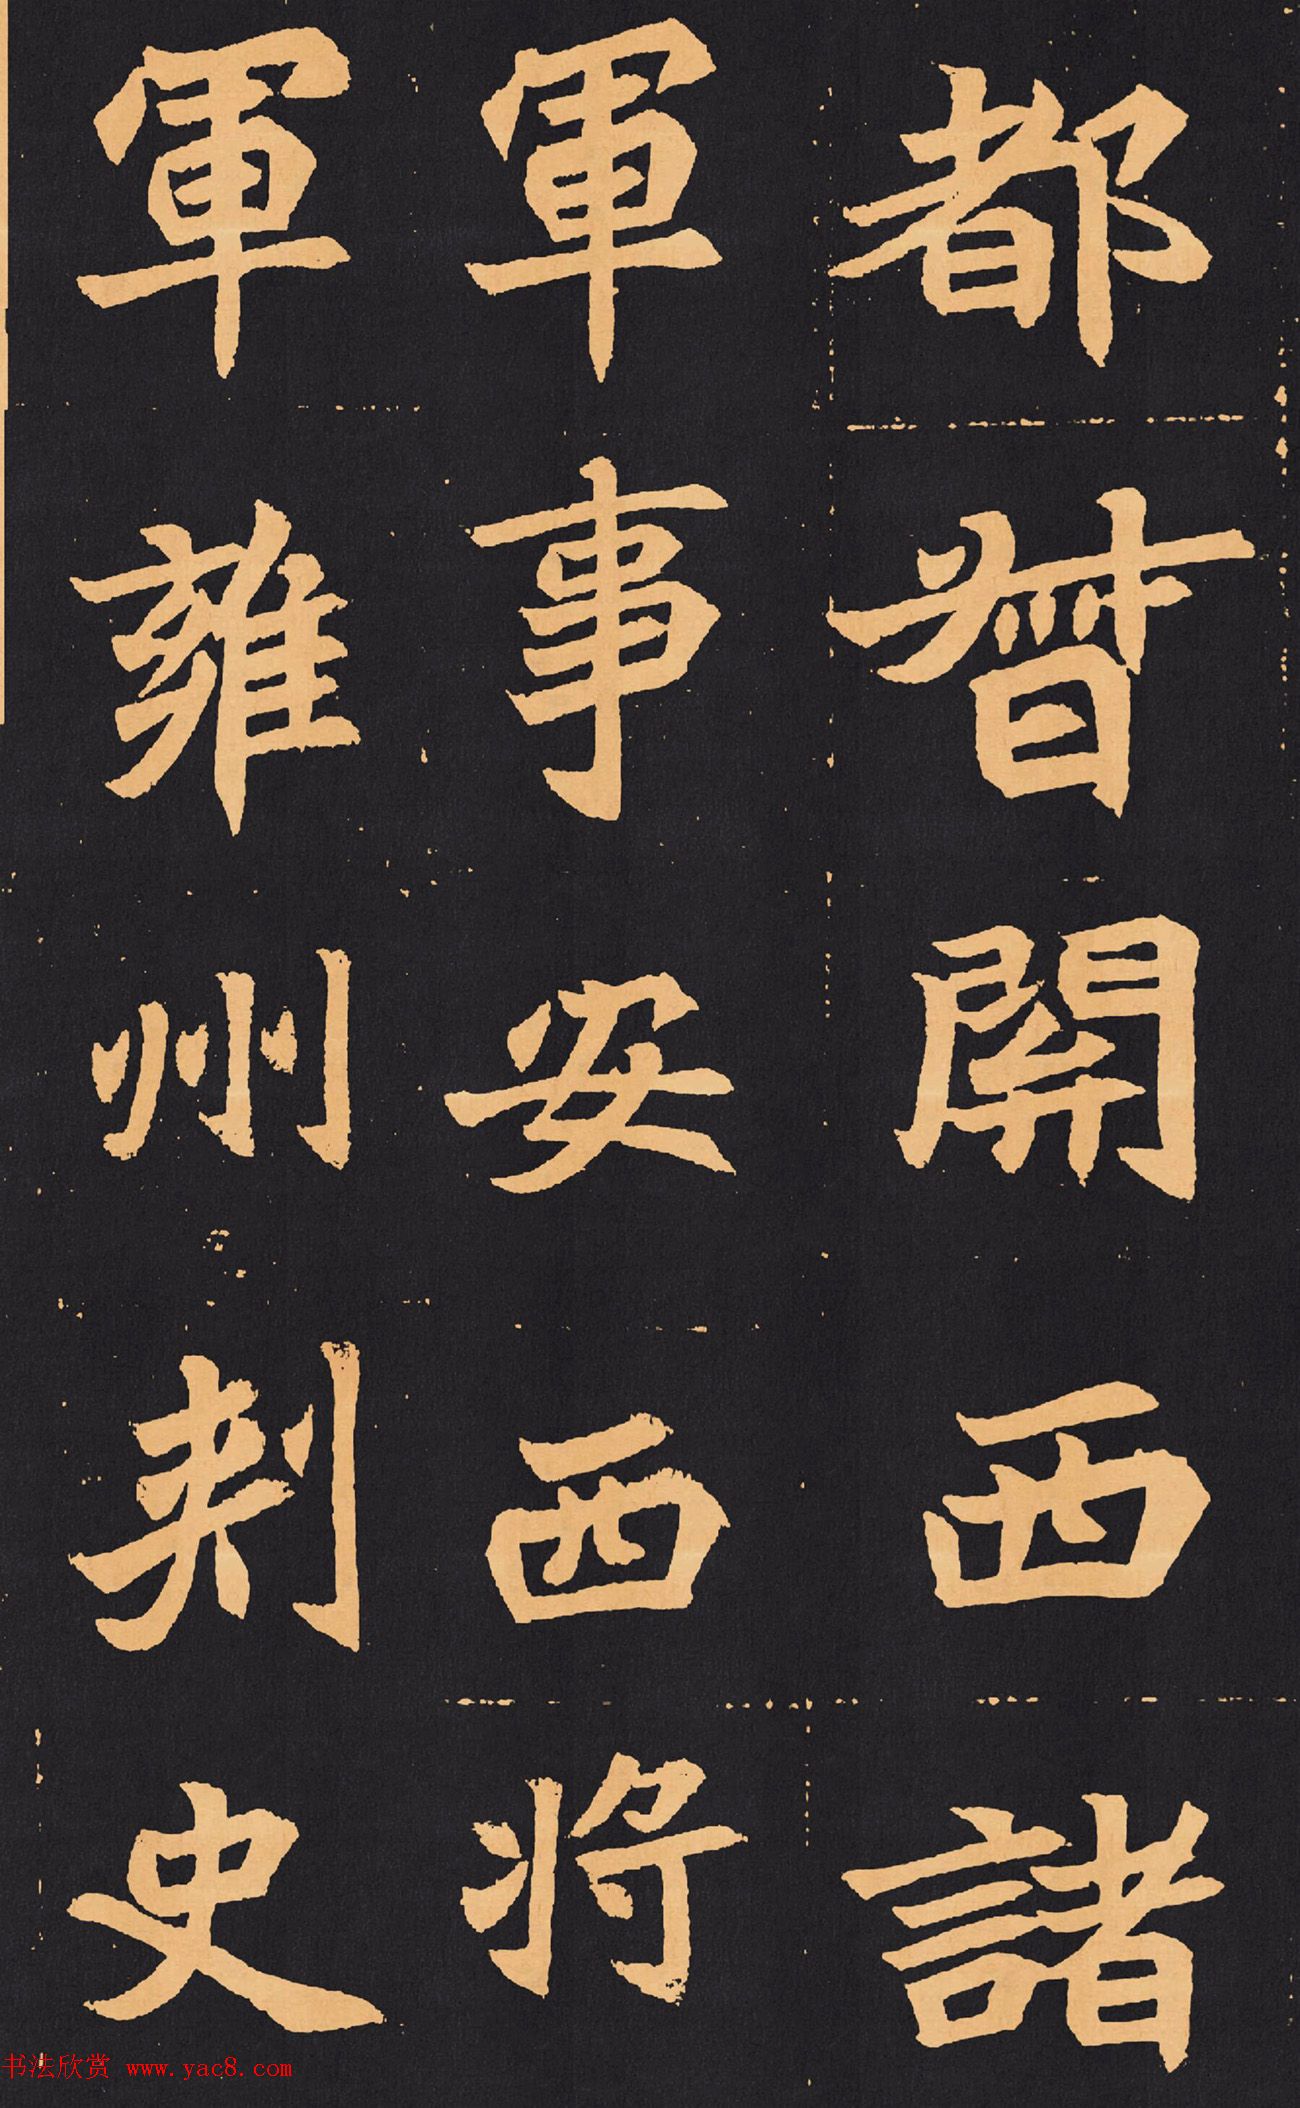 都督關西諸
軍事安西將
軍雍州刺史
书法欣赏 www.yac8.com